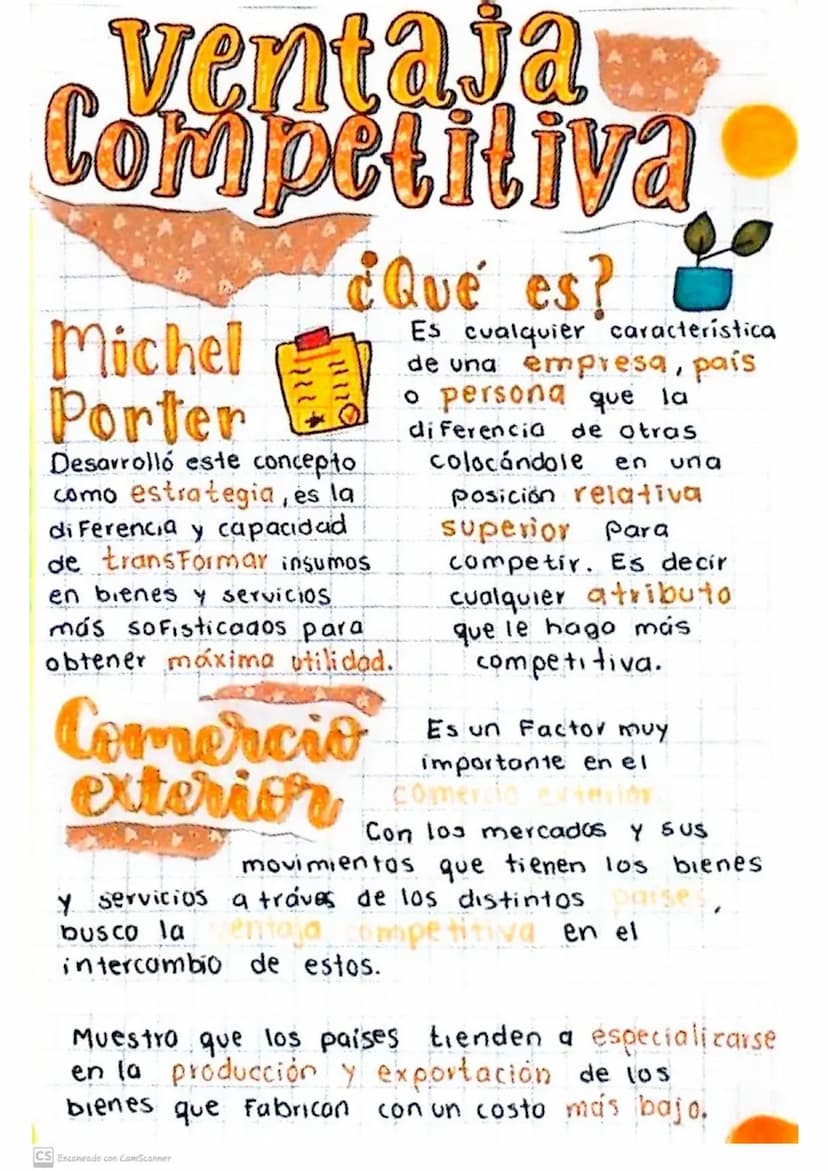 Ventaja
Competitiva
¿Qué es?
Es cualquier característica
de una empresa, país
o persona que la
diferencia de otras
colocándole en una
posición relativa
superior para
competir. Es decir
cualquier atributo
que le haga más
competitiva.
Michel
Porter
Desarrolló este concepto
como estrategia, es la
diferencia y capacidad
de transformar insumos
en bienes y servicios
más sofisticados para
obtener máxima utilidad.
Comercio
exterior
Es un factor muy
importante en el
comercio exterior
Con los mercados y sus
movimientos que tienen los bienes
y servicios a tráves de los distintos países,
busca la ventaja competitiva en el
intercambio de estos.
Muestra que los países tienden a especializarse
en la producción y exportación de los
bienes que fabrican con un costo más bajo.
CS Escaneado con CamScanner